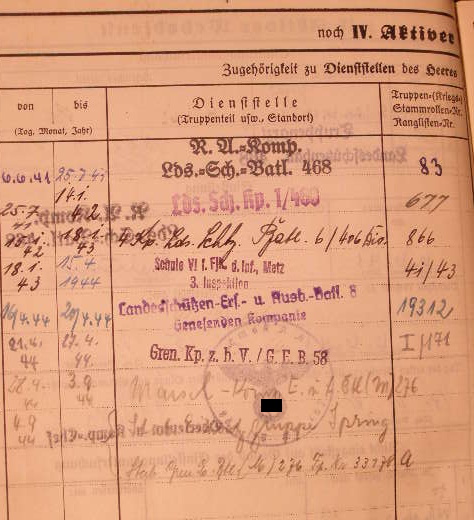 noch IV. Aktiver
Zugehörigkeit zu Dienststellen des Heeres
von bis
(Tag, Monat, Jahr)
Dienststelle
(Truppenteil usw., Standort)
Truppen-(Kriegs-)
Stammrollen-Nr.
Ranglisten-Nr.
6.6.41 25.7.41
R. A.-Komp.
Lds.-Sch.-Batl. 468
83
25.7. 14.1.
41 42
Lds. Sch. Kp. 1/460
677
18.1.
42 43
Kp. Lds. Schtz. Batl. 6/406
866
18.1. 15.4.
43 1944
Schule VI f. FJK d. Inf., Metz
3. Inspektion
41/43
16/4.44 20/4.44
Landesschützen-Ers.- u. Ausb.-Batl. 8
Genesenden Kompanie
19312
21.4. 27.4.
44 44
Gren. Kp. z. b. V. / G. E. B. 58
I/171
28.4. 3.9.
44 44
Marsch-Komp. 276
4.9
44
Gruppe Spring
Stab 276
A